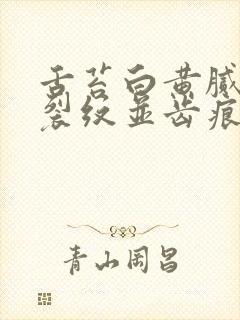 舌苔白黄腻
裂纹并齿痕
青山周昌